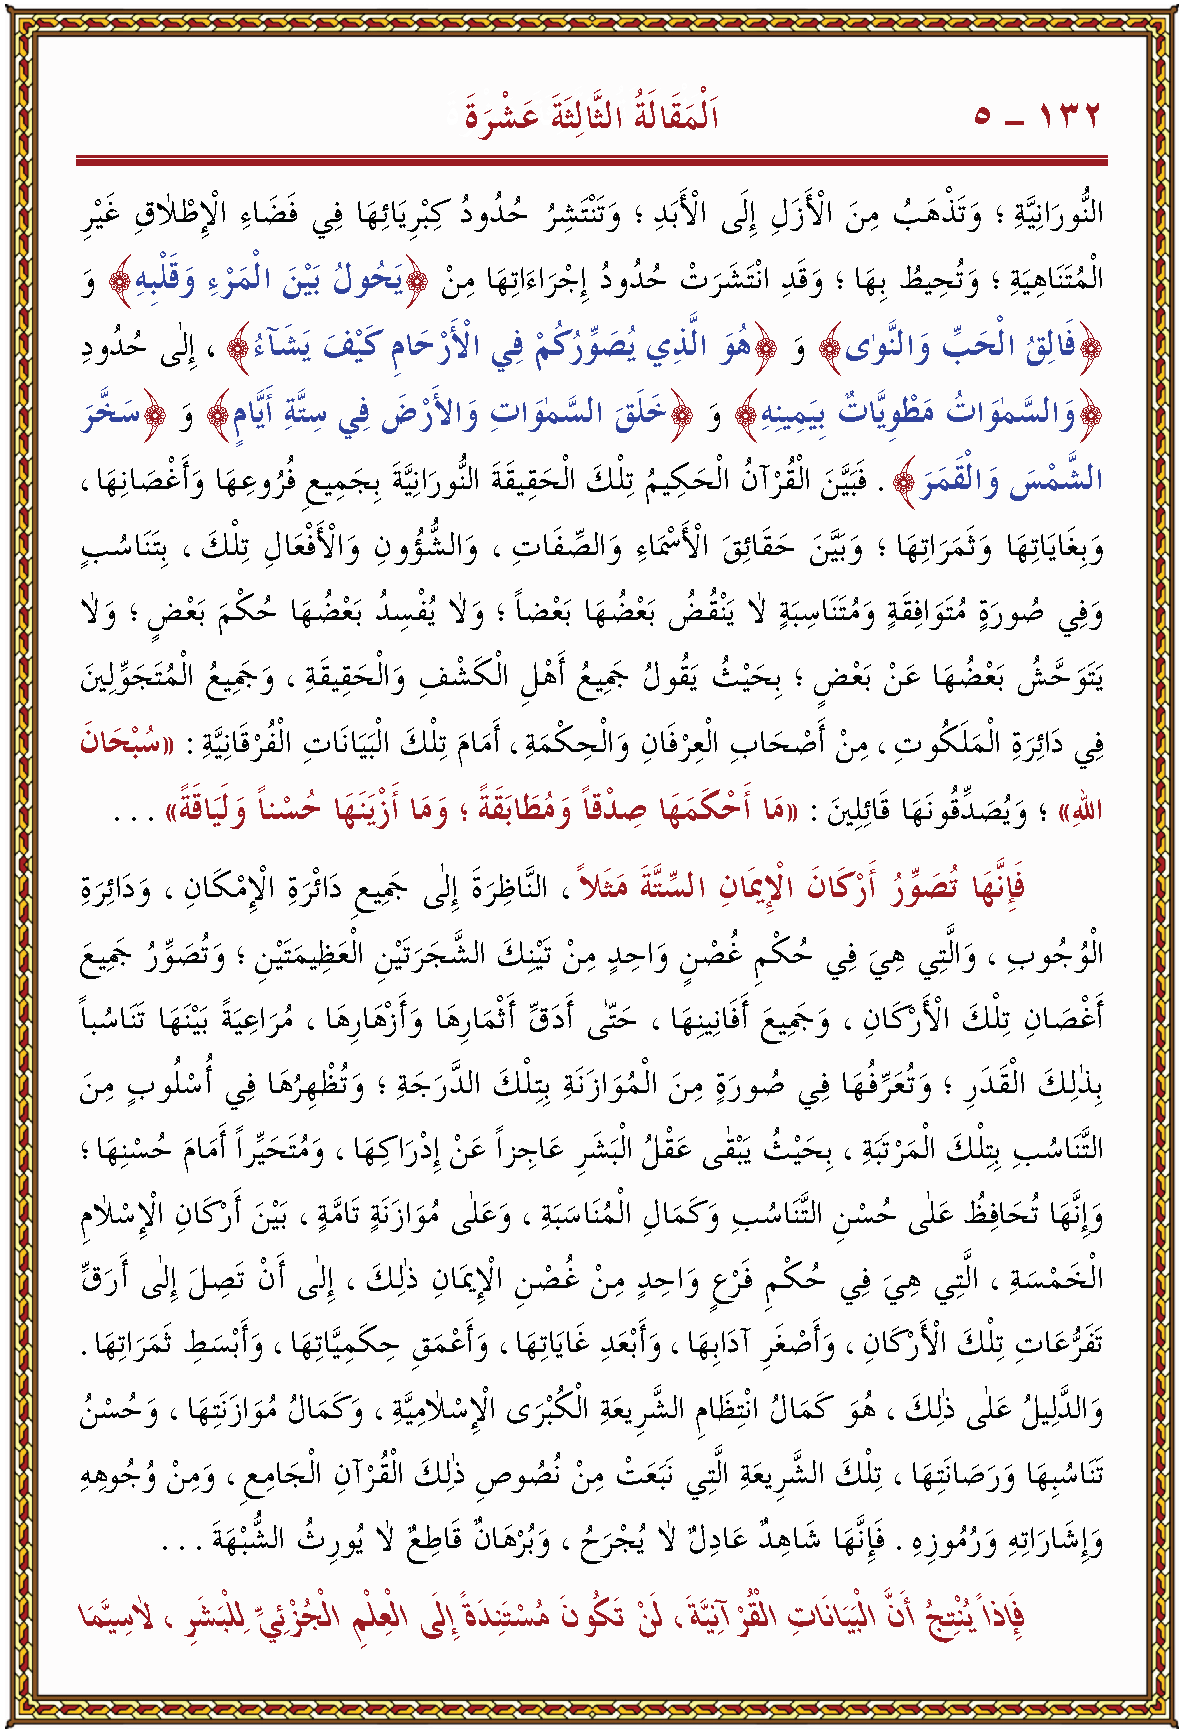 ١٣٢ – ٥ اَلْمَقَالَةُ الثَّالِثَةَ عَشْرَةَ
النُّورَانِيَّةِ ؛ وَتَذْهَبُ مِنَ الْأَزَلِ إِلَى الْأَبَدِ ؛ وَتَنْتَشِرُ حُدُودُ كِبْرِيَائِهَا فِي فَضَاءِ الْإِطْلَاقِ غَيْرِ
الْمُتَنَاهِيَةِ ؛ وَتُحِيطُ بِهَا ؛ وَقَدِ انْتَشَرَتْ حُدُودُ إِجْرَاءَاتِهَا مِنْ ﴿يَحُولُ بَيْنَ الْمَرْءِ وَقَلْبِهِ﴾ وَ
﴿فَالِقُ الْحَبِّ وَالنَّوٰى﴾ وَ ﴿هُوَ الَّذِي يُصَوِّرُكُمْ فِي الْأَرْحَامِ كَيْفَ يَشَآءُ﴾ ، إِلٰى حُدُودِ
﴿وَالسَّمٰوَاتُ مَطْوِيَّاتٌ بِيَمِينِهِ﴾ وَ ﴿خَلَقَ السَّمٰوَاتِ وَالْأَرْضَ فِي سِتَّةِ أَيَّامٍ﴾ وَ ﴿سَخَّرَ
الشَّمْسَ وَالْقَمَرَ﴾ . فَبَيَّنَ الْقُرْآنُ الْحَكِيمُ تِلْكَ الْحَقِيقَةَ النُّورَانِيَّةَ بِجَمِيعِ فُرُوعِهَا وَأَغْصَانِهَا ،
وَبِغَايَاتِهَا وَثَمَرَاتِهَا ؛ وَبَيَّنَ حَقَائِقَ الْأَسْمَاءِ وَالصِّفَاتِ ، وَالشُّؤُونِ وَالْأَفْعَالِ تِلْكَ ، بِتَنَاسُبٍ
وَفِي صُورَةٍ مُتَوَافِقَةٍ وَمُتَنَاسِبَةٍ لَا يَنْقُضُ بَعْضُهَا بَعْضاً ؛ وَلَا يُفْسِدُ بَعْضُهَا حُكْمَ بَعْضٍ ؛ وَلَا
يَتَوَحَّشُ بَعْضُهَا عَنْ بَعْضٍ ؛ بِحَيْثُ يَقُولُ جَمِيعُ أَهْلِ الْكَشْفِ وَالْحَقِيقَةِ ، وَجَمِيعُ الْمُتَجَوِّلِينَ
فِي دَائِرَةِ الْمَلَكُوتِ ، مِنْ أَصْحَابِ الْعِرْفَانِ وَالْحِكْمَةِ ، أَمَامَ تِلْكَ الْبَيَانَاتِ الْفُرْقَانِيَّةِ : «سُبْحَانَ
اللهِ» ؛ وَيُصَدِّقُونَهَا قَائِلِينَ : «مَا أَحْكَمَهَا صِدْقاً وَمُطَابَقَةً ؛ وَمَا أَزْيَنَهَا حُسْناً وَلَيَاقَةً» . . .
فَإِنَّهَا تُصَوِّرُ أَرْكَانَ الْإِيمَانِ السِّتَّةَ مَثَلاً ، النَّاظِرَةَ إِلٰى جَمِيعِ دَائِرَةِ الْإِمْكَانِ ، وَدَائِرَةِ
الْوُجُوبِ ، وَالَّتِي هِيَ فِي حُكْمِ غُصْنٍ وَاحِدٍ مِنْ تَيْنِكَ الشَّجَرَتَيْنِ الْعَظِيمَتَيْنِ ؛ وَتُصَوِّرُ جَمِيعَ
أَغْصَانِ تِلْكَ الْأَرْكَانِ ، وَجَمِيعَ أَفَانِينِهَا ، حَتّٰى أَدَقِّ أَثْمَارِهَا وَأَزْهَارِهَا ، مُرَاعِيَةً بَيْنَهَا تَنَاسُباً
بِذٰلِكَ الْقَدَرِ ؛ وَتُعَرِّفُهَا فِي صُورَةٍ مِنَ الْمُوَازَنَةِ بِتِلْكَ الدَّرَجَةِ ؛ وَتُظْهِرُهَا فِي أُسْلُوبٍ مِنَ
التَّنَاسُبِ بِتِلْكَ الْمَرْتَبَةِ ، بِحَيْثُ يَبْقٰى عَقْلُ الْبَشَرِ عَاجِزاً عَنْ إِدْرَاكِهَا ، وَمُتَحَيِّراً أَمَامَ حُسْنِهَا ؛
وَإِنَّهَا تُحَافِظُ عَلٰى حُسْنِ التَّنَاسُبِ وَكَمَالِ الْمُنَاسَبَةِ ، وَعَلٰى مُوَازَنَةٍ تَامَّةٍ ، بَيْنَ أَرْكَانِ الْإِسْلَامِ
الْخَمْسَةِ ، الَّتِي هِيَ فِي حُكْمِ فَرْعٍ وَاحِدٍ مِنْ غُصْنِ الْإِيمَانِ ذٰلِكَ ، إِلٰى أَنْ تَصِلَ إِلٰى أَرَقِّ
تَفَرُّعَاتِ تِلْكَ الْأَرْكَانِ ، وَأَصْغَرِ آدَابِهَا ، وَأَبْعَدِ غَايَاتِهَا ، وَأَعْمَقِ حِكَمِيَّاتِهَا ، وَأَبْسَطِ ثَمَرَاتِهَا .
وَالدَّلِيلُ عَلٰى ذٰلِكَ ، هُوَ كَمَالُ انْتِظَامِ الشَّرِيعَةِ الْكُبْرَى الْإِسْلَامِيَّةِ ، وَكَمَالُ مُوَازَنَتِهَا ، وَحُسْنُ
تَنَاسُبِهَا وَرَصَانَتِهَا ، تِلْكَ الشَّرِيعَةِ الَّتِي نَبَعَتْ مِنْ نُصُوصِ ذٰلِكَ الْقُرْآنِ الْجَامِعِ ، وَمِنْ وُجُوهِهِ
وَإِشَارَاتِهِ وَرُمُوزِهِ . فَإِنَّهَا شَاهِدٌ عَادِلٌ لَا يُجْرَحُ ، وَبُرْهَانٌ قَاطِعٌ لَا يُورِثُ الشُّبْهَةَ . . .
فَإِذاً يُنْتِجُ أَنَّ الْبَيَانَاتِ الْقُرْآنِيَّةَ ، لَنْ تَكُونَ مُسْتَنِدَةً إِلَى الْعِلْمِ الْجُزْئِيِّ لِلْبَشَرِ ، لَاسِيَّمَا